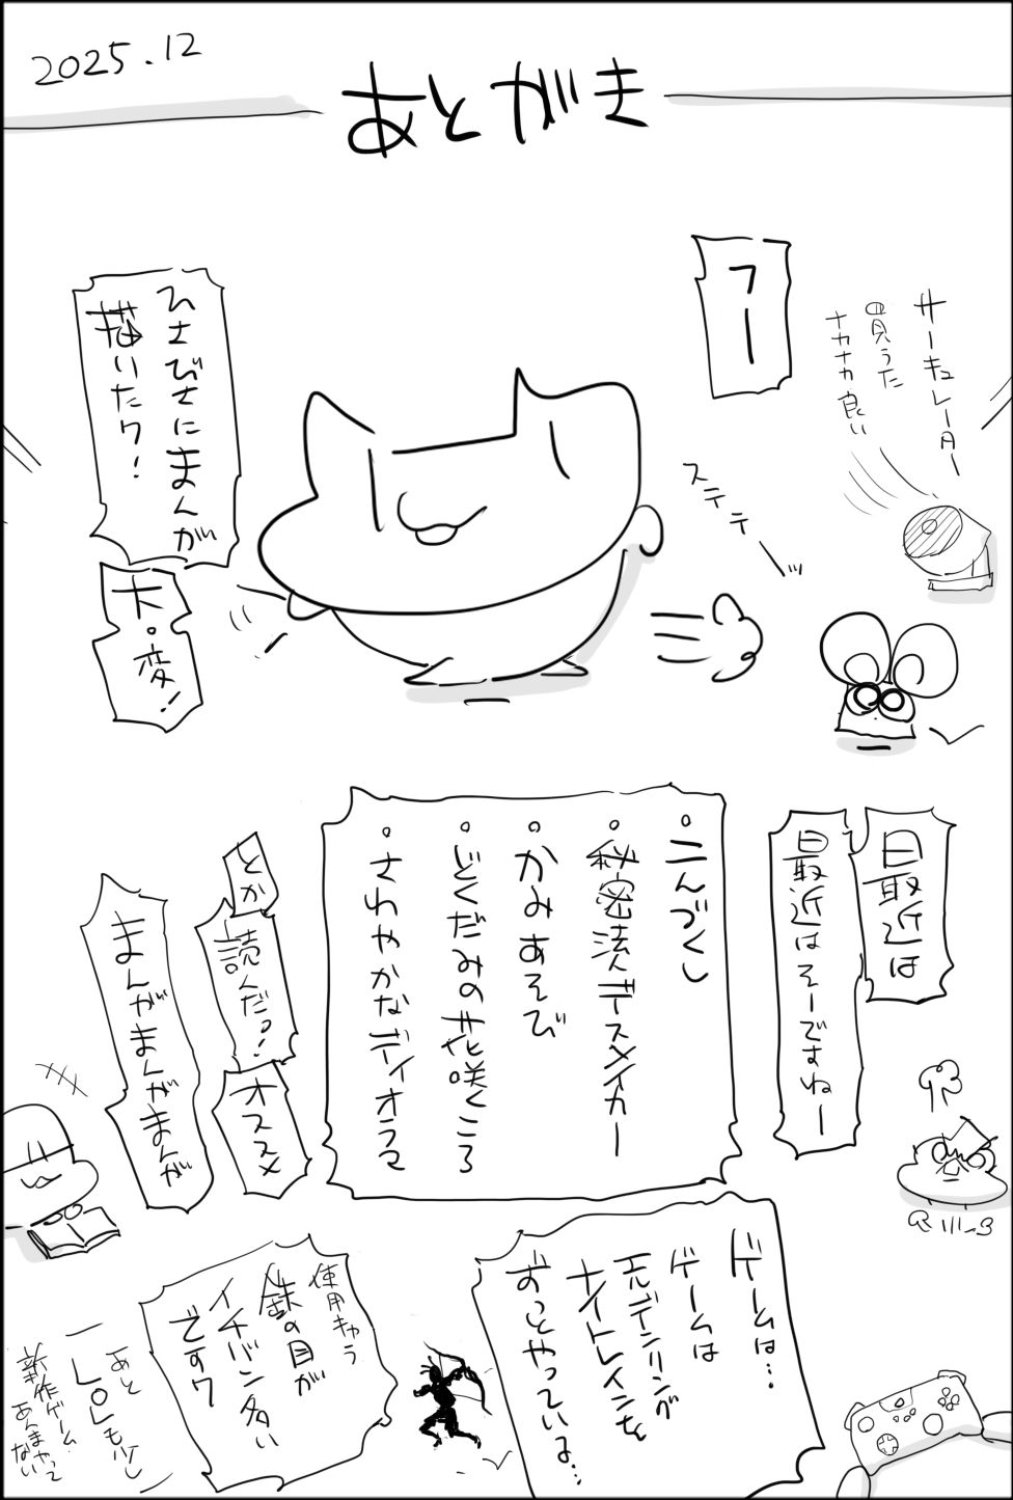 2025.12
あとがき
フー
サーキュレーター
買うた
ナカナカ良い
ステテーッ
ひさびさにまんが
描いたワ!
大。変!
最近は
最近はそーですねー
・二んづくし
・秘密法人デスメイカー
・かみあそび
・どくだみの花咲くころ
・さわやかなディオラマ
とか
読んだっ!
オススメ
まんがまんがまんが
ゲームは…
ゲームは
エルデンリング
ナイトレインを
ずっとやっているよ…
使用キャラ
鉄の目が
イチバン多い
ですワ
あと
LOLも少し
新作ゲーム
あんまやって
ない